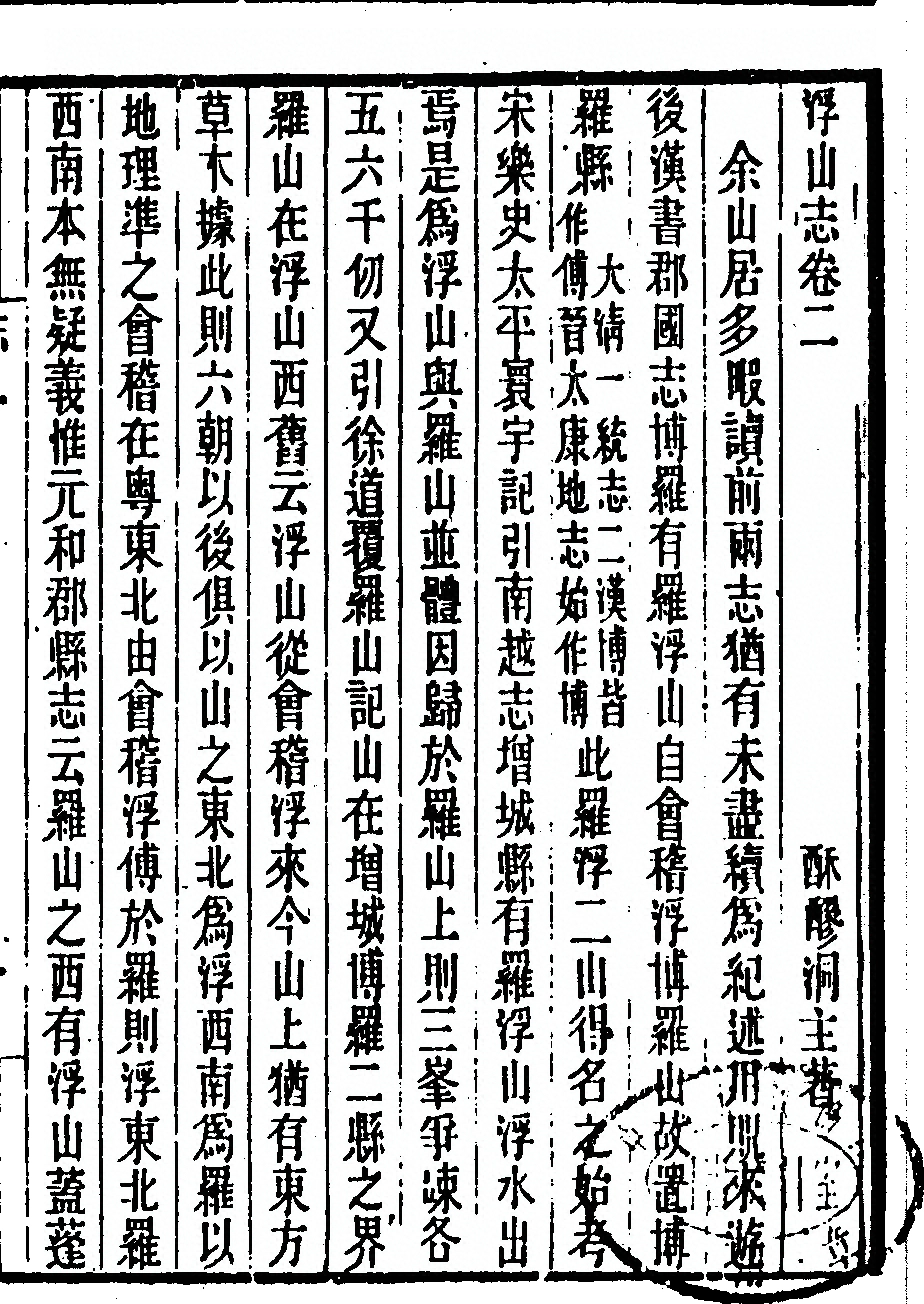 浮山志卷二
酥醪洞主著
余山居多暇讀前兩志猶有未盡續爲紀述用貺來遊
後漢書郡國志博羅有羅浮山自會稽浮博羅山故置博
羅縣大清一統志二漢博皆作傅晉太康地志始作博此羅浮二山得名之始考
宋樂史太平寰宇記引南越志增城縣有羅浮山浮水出
焉是爲浮山與羅山並體因歸於羅山上則三峯爭竦各
五六千仞又引徐道覆羅山記山在增城博羅二縣之界
羅山在浮山西舊云浮山從會稽浮來今山上猶有東方
草木據此則六朝以後俱以山之東北爲浮西南爲羅以
地理準之會稽在粤東北由會稽浮傅於羅則浮東北羅
西南本無疑義惟元和郡縣志云羅山之西有浮山蓋蓬